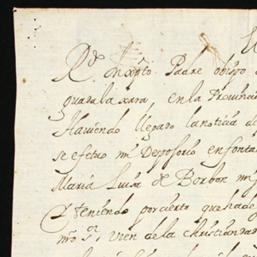 Rdo. in xpto Padre obispo
guadalaxara, en la Provincia
Haviendo llegado la noticia de
se efetuo mi Desposorio en font
Maria Luisa de Borbon mi
Y teniendo por cierto que ha de
nro Sr. vien de la christiandad